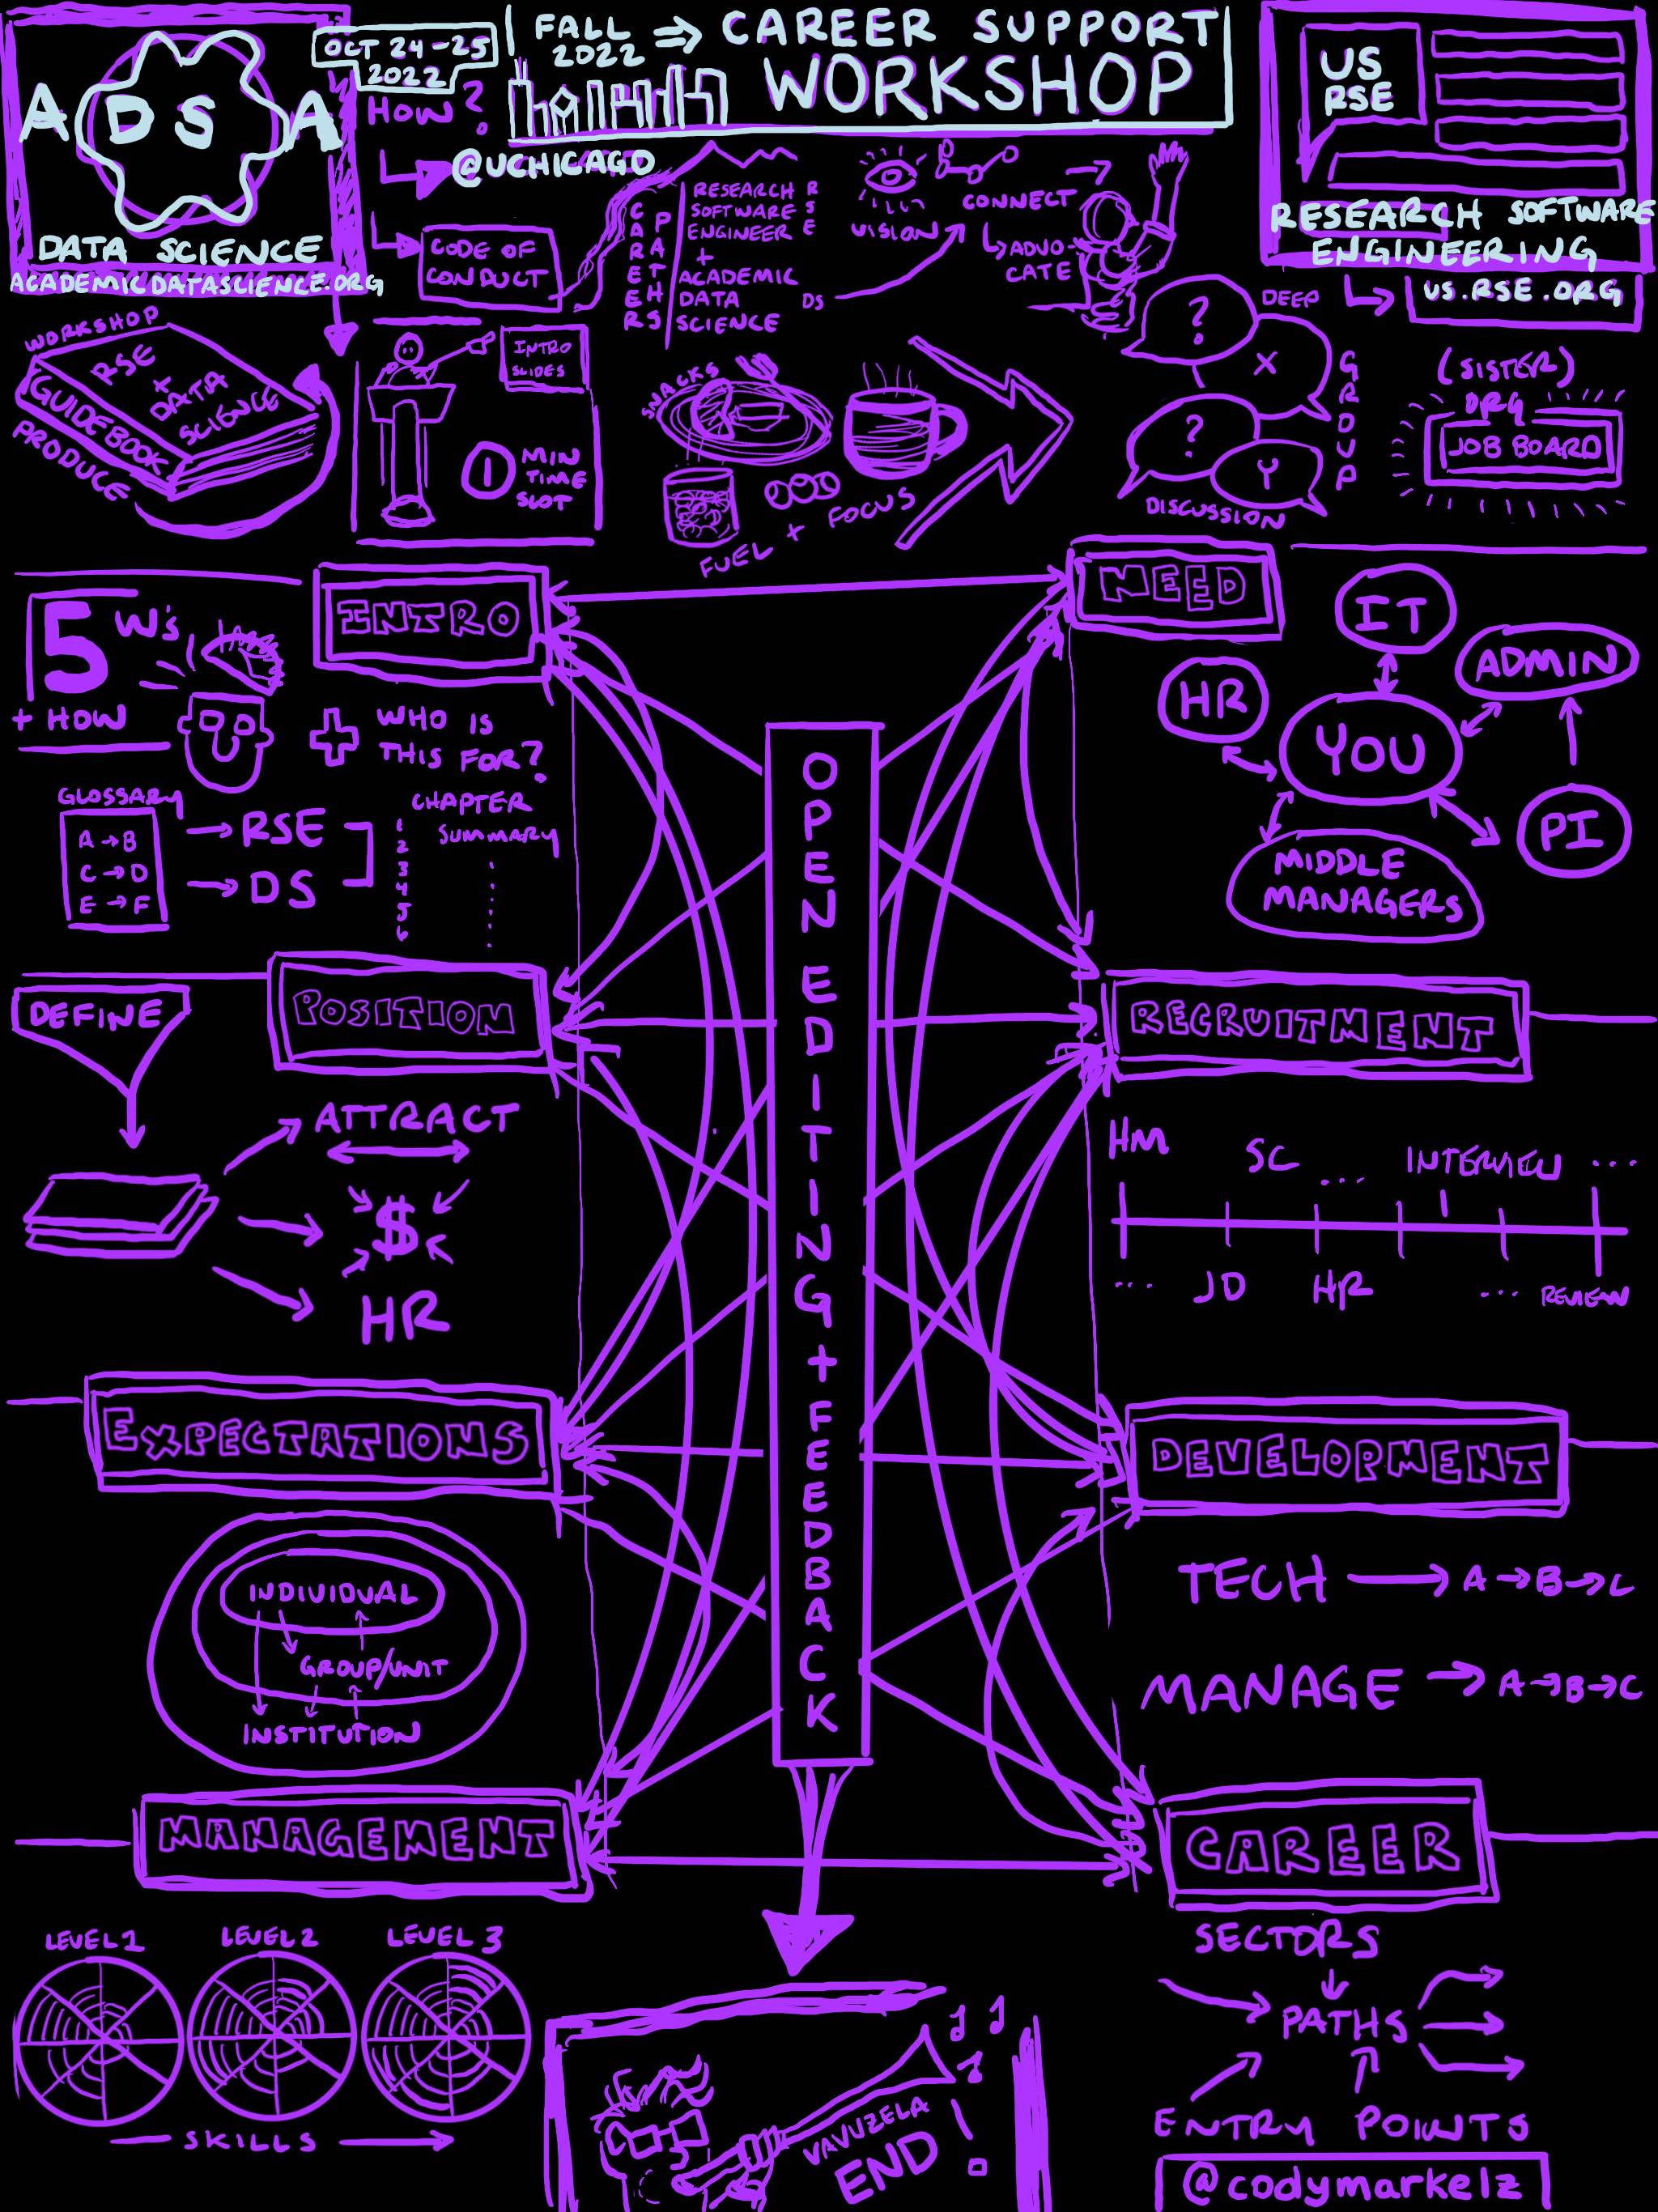 ADSA
DATA SCIENCE
ACADEMICDATASCIENCE.ORG
OCT 24-25
2022
HOW?
FALL
2022
⇒ CAREER SUPPORT
WORKSHOP
@UCHICAGO
CODE OF
CONDUCT
CAREER
PATHS
RESEARCH
SOFTWARE
ENGINEER
+
ACADEMIC
DATA
SCIENCE
RSE
DS
VISION
CONNECT
ADVO-
CATE
US
RSE
RESEARCH SOFTWARE
ENGINEERING
US.RSE.ORG
WORKSHOP
RSE
+
DATA
SCIENCE
GUIDEBOOK
PRODUCE
INTRO
SLIDES
1 MIN
TIME
SLOT
SNACKS
FUEL + FOCUS
DEEP
GROUP
DISCUSSION
?
X
?
Y
(SISTER)
ORG
JOB BOARD
INTRO
5 W's
+ HOW
WHO IS
THIS FOR?
GLOSSARY
A→B
C→D
E→F
→RSE
→DS
CHAPTER
SUMMARY
1
2
3
4
5
6
NEED
IT
ADMIN
HR
YOU
PI
MIDDLE
MANAGERS
OPEN EDITING + FEEDBACK
POSITION
DEFINE
ATTRACT
$
HR
RECRUITMENT
HM
SC
...
INTERVIEW
...
...
JD
HR
...
REVIEW
EXPECTATIONS
INDIVIDUAL
GROUP/UNIT
INSTITUTION
DEVELOPMENT
TECH → A→B→C
MANAGE → A→B→C
MANAGEMENT
LEVEL 1
LEVEL 2
LEVEL 3
SKILLS
CAREER
SECTORS
PATHS
ENTRY POINTS
VAVUZELA
END!
@codymarkelz